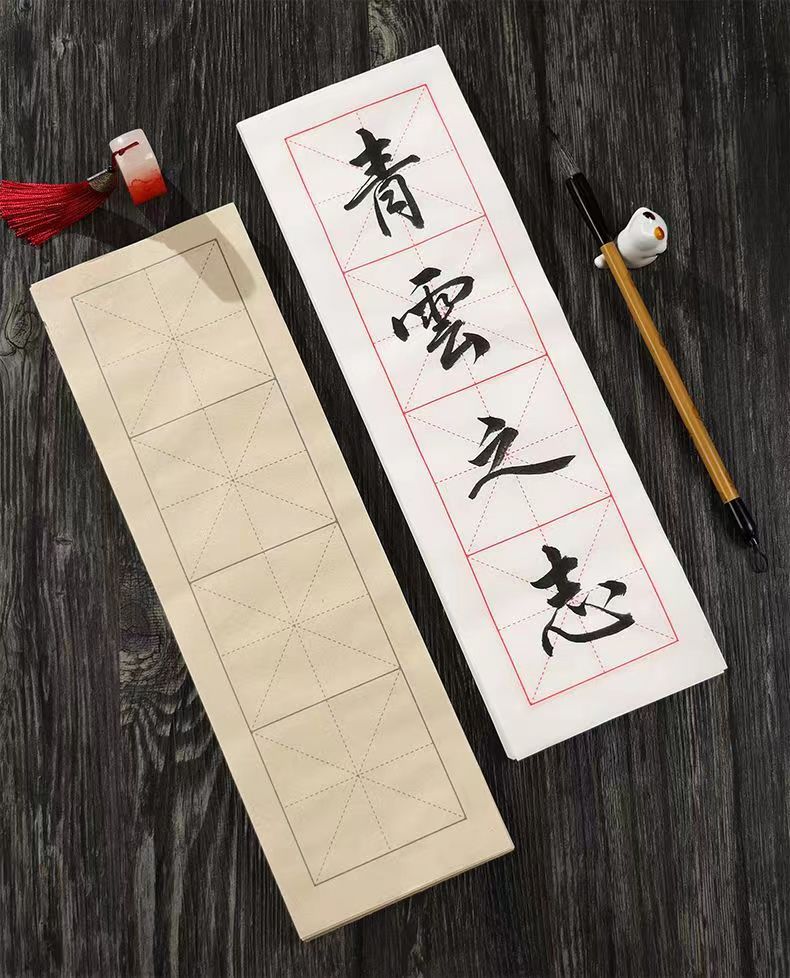 青雲之志